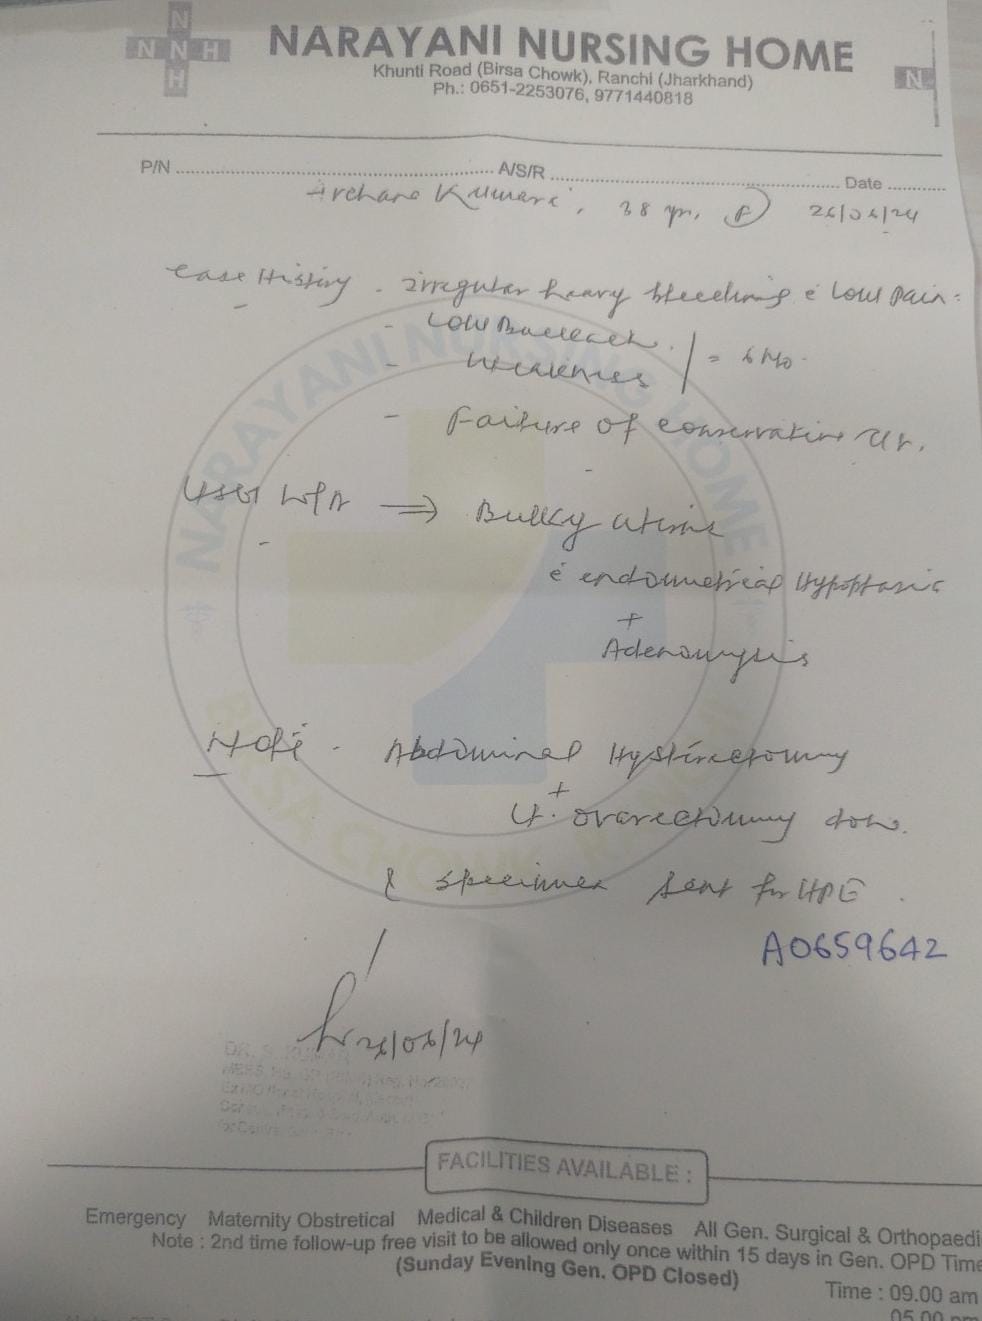 N
N N H
H
NARAYANI NURSING HOME
Khunti Road (Birsa Chowk), Ranchi (Jharkhand)
Ph.: 0651-2253076, 9771440818
N
P/N ........ A/S/R ........ Date ........
Archana Kumari, 38 yr, F 26/06/24
Case History - irregular heavy bleeding c̄ low pain
- Low Backach
- Weakness = 6 Mo
- Failure of conservative
USG W/A ⇒ Bulky uterus
c̄ endometrial Hypoplasia
+
Adenomyosis
- Abdominal Hysterectomy
+
Lt. ovarectomy done.
& specimen sent for HPE.
A0659642
26/06/24
DR. S. KUMAR
FACILITIES AVAILABLE :
Emergency Maternity Obstretical Medical & Children Diseases All Gen. Surgical & Orthopaedi
Note : 2nd time follow-up free visit to be allowed only once within 15 days in Gen. OPD Time
(Sunday Evening Gen. OPD Closed)
Time : 09.00 am
05.00 pm
NARAYANI NURSING HOME
BIRSA CHOWK, RANCHI